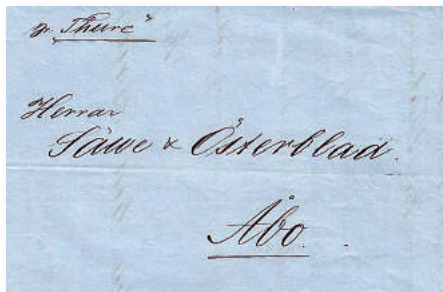 pr "Thure"
Herrar
Säwe & Österblad.
Åbo.